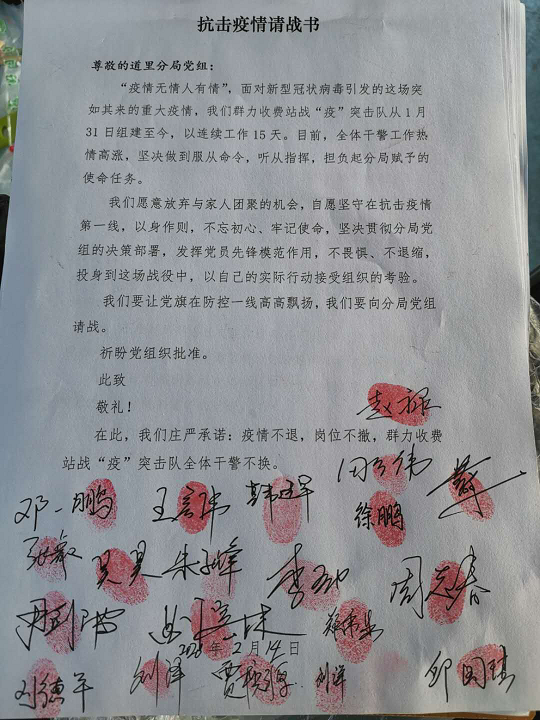 抗击疫情请战书
尊敬的道里分局党组：
“疫情无情人有情”，面对新型冠状病毒引发的这场突
如其来的重大疫情，我们群力收费站战“疫”突击队从1月
31日组建至今，以连续工作15天。目前，全体干警工作热
情高涨，坚决做到服从命令，听从指挥，担负起分局赋予的
使命任务。
我们愿意放弃与家人团聚的机会，自愿坚守在抗击疫情
第一线，以身作则，不忘初心、牢记使命，坚决贯彻分局党
组的决策部署，发挥党员先锋模范作用，不畏惧、不退缩，
投身到这场战役中，以自己的实际行动接受组织的考验。
我们要让党旗在防控一线高高飘扬，我们要向分局党组
请战。
祈盼党组织批准。
此致
敬礼！
在此，我们庄严承诺：疫情不退，岗位不撤，群力收费
站战“疫”突击队全体干警不换。
邓一鹏 徐鹏
周志春
年2月14日
刘德军 刘洋 刘洋